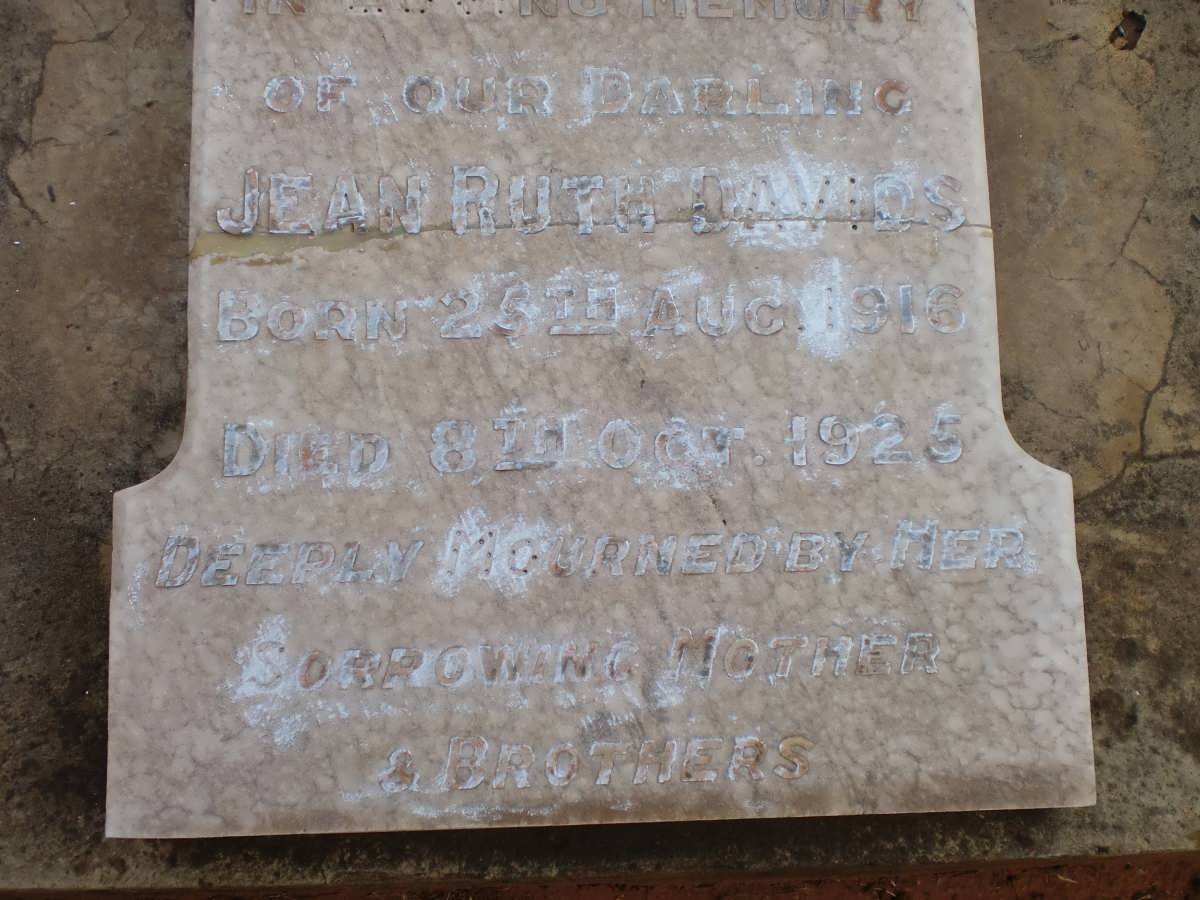 IN LOVING MEMORY
OF OUR DARLING
JEAN RUTH DAVIDS
BORN 25TH AUG. 1916
DIED 8TH OCT. 1925
DEEPLY MOURNED BY HER
SORROWING MOTHER
& BROTHERS